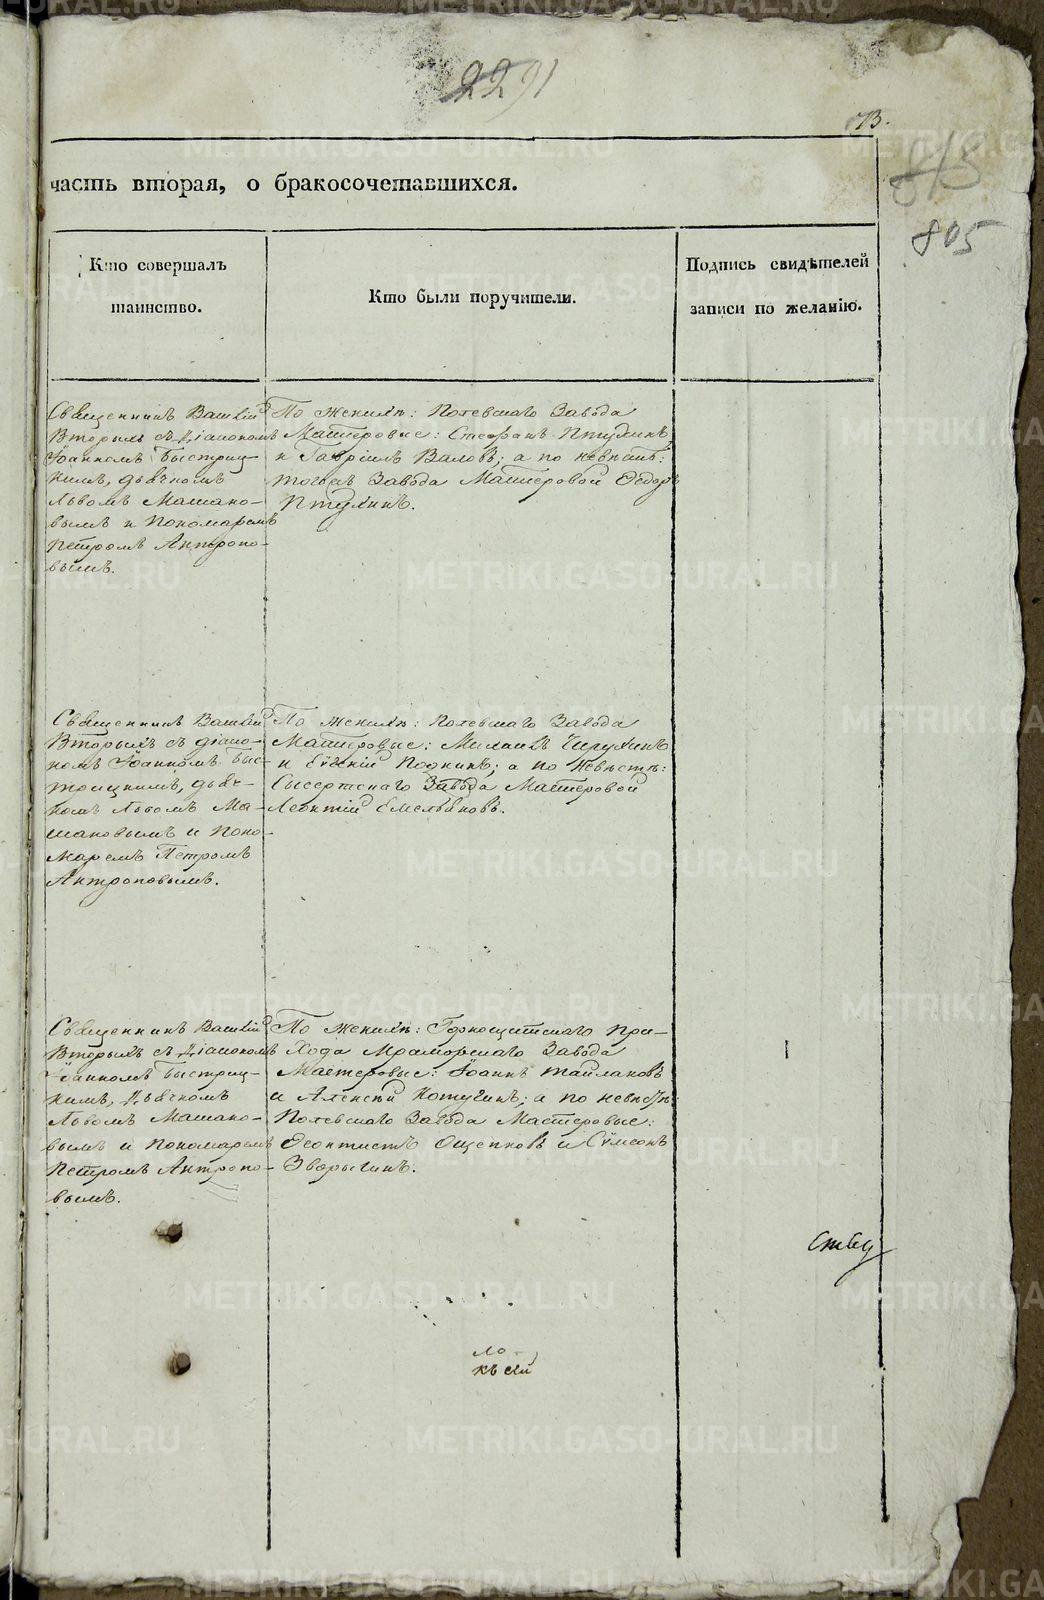 2291
73.
815
805
часть вторая, о бракосочетавшихся.
Кто совершалъ
таинство.
Кто были поручители.
Подпись свидѣтелей
записи по желанію.
Священникъ Василій
Вторыхъ съ Діакономъ
Іоанномъ Быстриц-
кимъ, дьячкомъ
Львомъ Машано-
вымъ и Пономаремъ
Петромъ Антропо-
вымъ.
По женихѣ: Полевскаго Завода
Мастеровые: Стефанъ Птухинъ
и Гавріилъ Валовъ; а по невѣстѣ:
тогожъ Завода Мастеровой Ѳедоръ
Птухинъ.
Священникъ Василій
Вторыхъ съ діако-
номъ Іоанномъ Быс-
трицкимъ, дьяч-
комъ Львомъ Ма-
шановымъ и Поно-
маремъ Петромъ
Антроповымъ.
По женихѣ: Полевскаго Завода
Мастеровые: Михаилъ Чирухинъ
и Евсевій; а по Невѣстѣ:
Сысертскаго Завода Мастеровой
Леонтій Емельяновъ.
Священникъ Василій
Вторыхъ съ Діакономъ
Іоанномъ Быстриц-
кимъ, Дьячкомъ
Львомъ Машано-
вымъ и Пономаремъ
Петромъ Антропо-
вымъ.
По женихѣ: Горнощитскаго При-
хода Мраморскаго Завода
Мастеровые: Іоаннъ Тайлаковъ
и Алексѣй Котугинъ; а по невѣстѣ:
Полевскаго Завода Мастеровые:
Ѳеоктистъ Ощепковъ и Сѵмеонъ
Зворыгинъ.
къ сей
METRIKI.GASO-URAL.RU